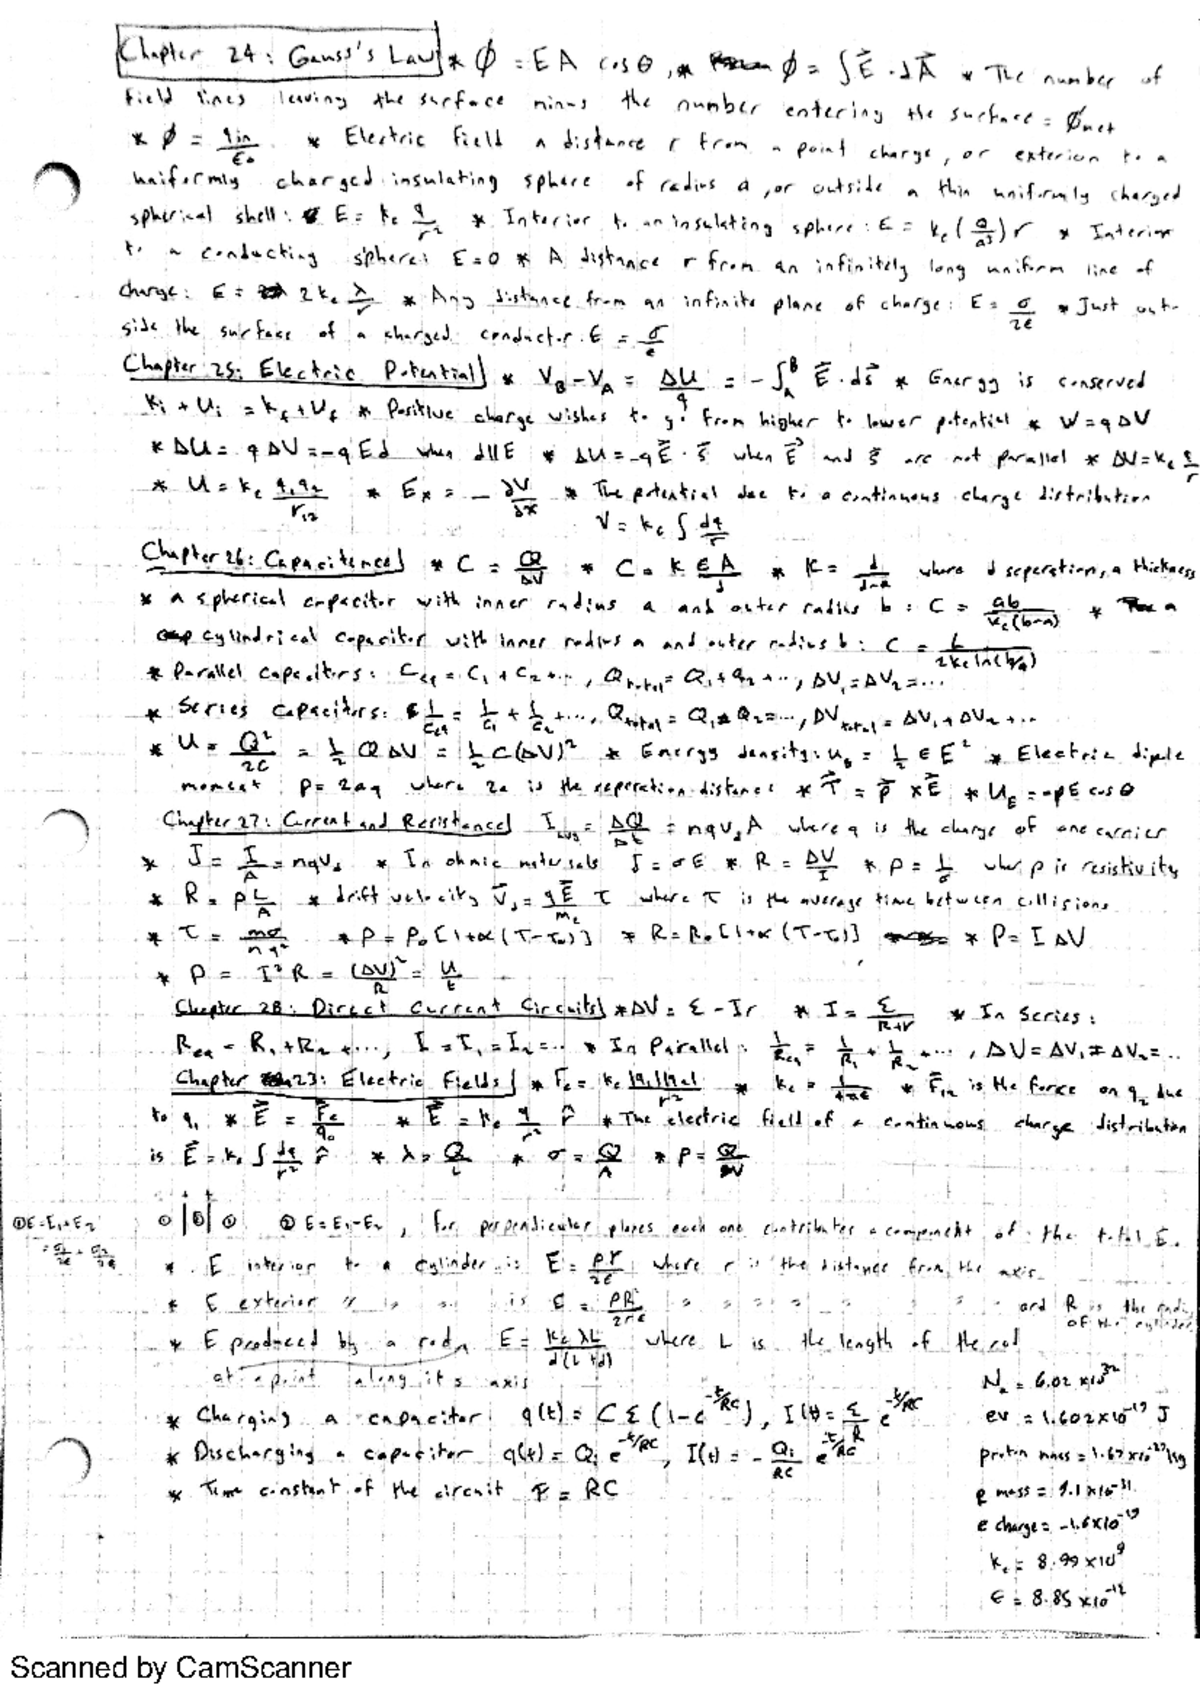 Chapter 24: Gauss's Law * Ø = EA cosθ, * Ø = ∫E⃗·dA⃗ * The number of
field lines leaving the surface minus the number entering the surface = Ønet
* Ø = qin/ε₀ * Electric field a distance r from a point charge, or exterior to a
uniformly charged insulating sphere of radius a, or outside a thin uniformly charged
spherical shell: E = kc q/r² * Interior to an insulating sphere: E = kc (Q/a³) r * Interior
to a conducting sphere: E=0 * A distance r from an infinitely long uniform line of
charge: E = 2kc λ/r * Any distance from an infinite plane of charge: E = σ/2ε * Just out-
side the surface of a charged conductor: E = σ/ε
Chapter 25: Electric Potential * VB-VA = ΔU/q = -∫ₐᴮ E⃗·ds⃗ * Energy is conserved
Ki + Ui = Kf + Uf * Positive charge wishes to go from higher to lower potential * W = qΔV
* ΔU = qΔV = -qEd when d||E * ΔU = -qE⃗·s⃗ when E⃗ and s⃗ are not parallel * ΔV = kc q/r
* U = kc q₁q₂/r₁₂ * Ex = -dV/dx * The potential due to a continuous charge distribution
V = kc ∫ dq/r
Chapter 26: Capacitence * C = Q/ΔV * C = k εA/d * K = d/d-a where d seperation, a thickness
* a spherical capacitor with inner radius a and outer radius b: C = ab/kc(b-a) * a
cylindrical capacitor with inner radius a and outer radius b: C = L/2kc ln(b/a)
* Parallel capacitors: Ceq = C₁ + C₂ + ..., Qtotal = Q₁ + Q₂ + ..., ΔV₁ = ΔV₂ = ...
* Series capacitors: 1/Ceq = 1/C₁ + 1/C₂ + ..., Qtotal = Q₁ = Q₂ = ..., DVtotal = ΔV₁ + ΔV₂ + ...
* U = Q²/2C = ½ QΔV = ½ C(ΔV)² * Energy density: uE = ½ εE² * Electric dipole
moment: p = 2aq where 2a is the seperation distance * τ⃗ = p⃗ × E⃗ * UE = -pE cosθ
Chapter 27: Current and Resistance Iavg = ΔQ/Δt = nqvdA where q is the charge of one carrier
* J = I/A = nqvd * In ohmic materials J = σE * R = ΔV/I * ρ = 1/σ wher ρ is resistivity
* R = ρ L/A * drift velocity v⃗d = qE⃗/me τ where τ is the average time between collisions
* τ = mσ/nq² * ρ = ρ₀[1+α(T-T₀)] * R = R₀[1+α(T-T₀)] * P = IΔV
* P = I²R = (ΔV)²/R = U/t
Chapter 28: Direct Current Circuits * ΔV = ε - Ir * I = ε/R+r * In Series:
Req = R₁+R₂+..., I = I₁ = I₂ = ... * In Parallel: 1/Req = 1/R₁ + 1/R₂ + ..., ΔV = ΔV₁ = ΔV₂ = ..
Chapter 23: Electric Fields * Fe = kc |q₁||q₂|/r² * kc = 1/4πε * F⃗₁₂ is the force on q₂ due
to q₁ * E⃗ = F⃗e/q₀ * E⃗ = kc q/r² r̂ * The electric field of a continuous charge distribution
is E⃗ = kc ∫ dq/r² r̂ * λ = Q/L * σ = Q/A * ρ = Q/V
① E = E₁+E₂ = σ₁/2ε + σ₂/2ε
② E = E₁-E₂, for perpendicular planes each one contributes a component of the total E.
* E interior to a cylinder is E = ρr/2ε where r is the distance from the axis
* E exterior " " " is E = ρR²/2rε " " " " " and R is the radius of the cylinder
* E produced by a rod, E = kc λL/d(L+d) where L is the length of the rod
at a point along its axis
* Charging a capacitor q(t) = Cε(1-e^-t/RC), I(t) = ε/R e^-t/RC
* Discharging a capacitor q(t) = Qi e^-t/RC, I(t) = -Qi/RC e^-t/RC
* Time constant of the circuit τ = RC
ev = 1.602×10⁻¹⁹ J
proton mass = 1.67×10⁻²⁷ kg
e mass = 9.1×10⁻³¹
e charge = -1.6×10⁻¹⁹
kc = 8.99×10⁹
ε = 8.85×10⁻¹²
Scanned by CamScanner